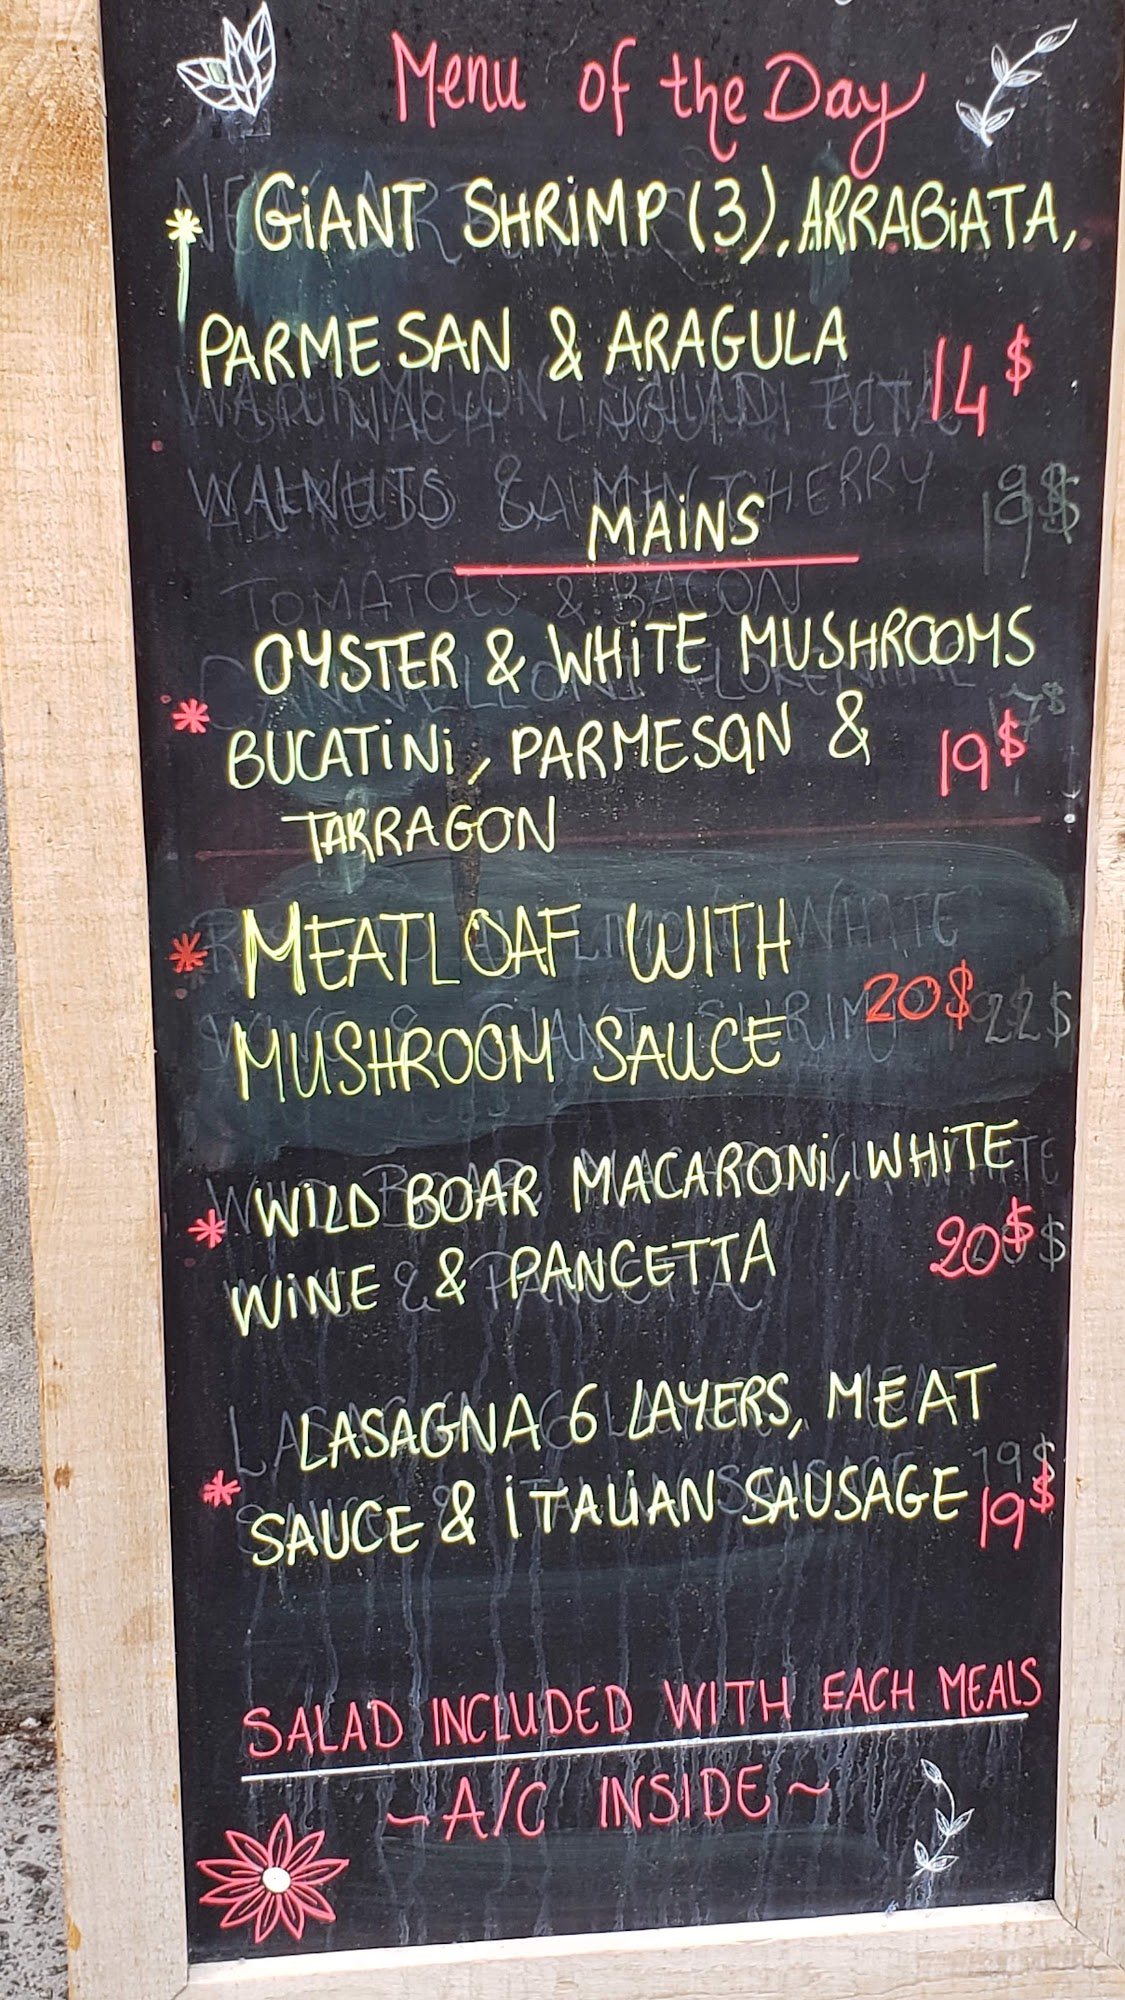 Menu of the Day
* GiANT SHRiMP (3), ARRABiATA,
PARMESAN & ARAGULA
14$
MAiNS
OYSTER & WHiTE MUSHROOMS
* BUCATiNi, PARMESAN &
19$
TARRAGON
* MEATLOAF WITH
20$
MUSHROOM SAUCE
* WiLD BOAR MACARONi, WHiTE
WiNE & PANCETTA
20$
LASAGNA 6 LAYERS, MEAT
* SAUCE & iTALiAN SAUSAGE 19$
SALAD INCLUDED WITH EACH MEALS
~ A/C INSIDE ~